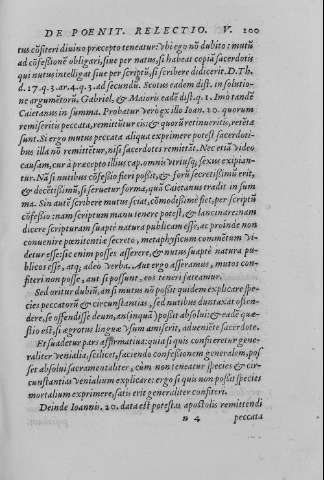 DE POENIT. RELECTIO. V. 100
tus cõfiteri diuino præcepto teneatur: Vbi ego nõ dubito: mutũ
ad cõfeßionẽ obligari, siue per natus, si habeat copiã sacerdotis
qui nutus intelligat siue per scriptũ, si scribere didicerit. D. Th.
d. 17. q. 3. ar. 4. q. 3. ad secundũ. Scotus eadem dist. in solutio-
ne argumẽtorũ, Gabriel, & Maioris eadẽ dist. q. 1. Imò tandẽ
Caietanus in summa. Probatur verò ex illo Ioan. 20. quorum
remiseritis peccata, remittũtur eis: & quorũ retinueritis, retẽta
sunt. Si ergo mutus peccata aliqua exprimere potest sacerdoti-
bus illa nõ remittẽtur, nisi sacerdotes remittãt. Nec etiã video
causam, cur à præcepto illius cap. omnis vtriusq; sexus exipian-
tur. Nã si nutibus cõfeßio fieri poßit, & forũ secretißimũ erit,
& decẽtißimũ, si seruetur forma, quã Caietanus tradit in sum
ma. Sin autẽ scribere mutus sciat, cõmodißimè fiet, per scriptũ
cõfeßio: nam scriptum manu tenere potest, & lancinare: nam
dicere scripturam suapte natura publicam esse, ac proinde non
conuenire pœnitentiæ secreto, metaphysicum commẽtum vi-
detur esse: sic enim posses asserere, & nutus suapte natura pu-
blicos esse, atq; adeò verba. Aut ergo asseramus, mutos con-
fiteri non posse, aut si possunt, eos teneri fateamur.
Sed oritur dubiũ, an si mutus nõ poßit quidem explicare spe-
cies peccatorũ & circunstantias, sed nutibus duntaxat osten-
dere, se offendisse deum, an (inquã) poßit absolui: & eadẽ quæ-
stio est, si ægrotus linguæ vsum amiserit, adueniẽte sacerdote.
Et suadetur pars affirmatiua: quia si quis confiteretur gene-
raliter venialia, scilicet, faciendo confeßionem generalem, pos
set absolui sacramentaliter, cùm non teneatur species & cir-
cunstantias venialium explicare: ergo si quis non poßit species
mortalium exprimere, satis erit generaliter confiteri.
Deinde Ioannis. 20. data est potestas apostolis remittendi
n 4 peccata